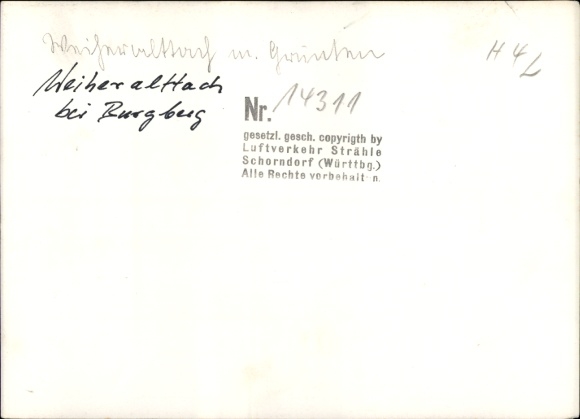 Weiheralttach m. Grünten
H 4 L
Weiheralttach
bei Burgberg
Nr. 14311
gesetzl. gesch. copyrigth by
Luftverkehr Strähle
Schorndorf (Württbg.)
Alle Rechte vorbehalten.